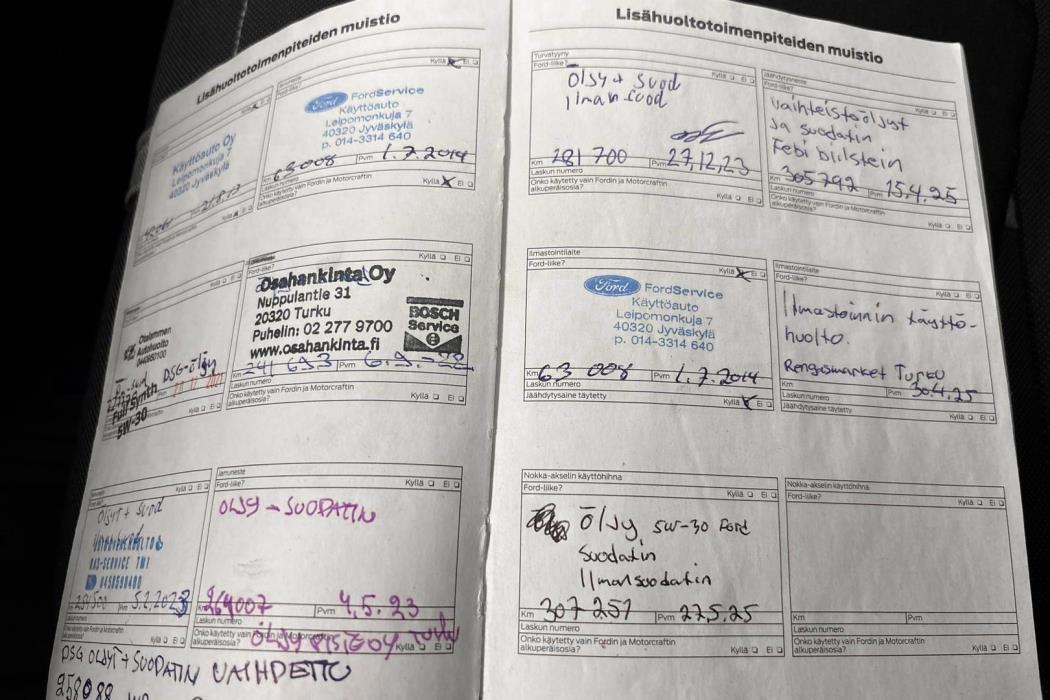 Lisähuoltotoimenpiteiden muistio
Käyttöauto Oy
Leipomonkuja 7
40320 Jyväskylä
Pvm 21.8.13
Kyllä Ei
Ford-liike?
Kyllä Ei
Ford FordService
Käyttöauto
Leipomonkuja 7
40320 Jyväskylä
p. 014-3314 640
Km 63 008 Pvm 1.7.2014
Laskun numero
Onko käytetty vain Fordin ja Motorcraftin
alkuperäisosia?
Kyllä Ei
Osalammen
Autohuolto
DSG-öljy
Full Synth
5W-30
Kyllä Ei
Ford-liike?
Kyllä Ei
Osahankinta Oy
Nuppulantie 31
20320 Turku
Puhelin: 02 277 9700
www.osahankinta.fi
BOSCH
Service
Km 241 693 Pvm 6.9.-22
Laskun numero
Onko käytetty vain Fordin ja Motorcraftin
alkuperäisosia?
Kyllä Ei
Ford-liike?
Kyllä Ei
Öljyt + suod
0458500400
Pvm 5.2.2023
Laskun numero
Kyllä Ei
Jarruneste
Ford-liike?
Kyllä Ei
ÖLJY - SUODATIN
Km 264007 Pvm 4.5.23
Laskun numero
Onko käytetty vain Fordin ja Motorcraftin
alkuperäisosia?
Kyllä Ei
DSG ÖLJYT + SUODATIN VAIHDETTU
258088
Lisähuoltotoimenpiteiden muistio
Turvatyyny
Ford-liike?
Kyllä Ei
Öljyt + suod
Ilman suod
Km 281 700 Pvm 27,12,23
Laskun numero
Onko käytetty vain Fordin ja Motorcraftin
alkuperäisosia?
Kyllä Ei
Jäähdytysneste
Ford-liike?
Kyllä Ei
Vaihteistööljyt
ja suodatin
Febi bilstein
Km 305792 Pvm 15.4.25
Laskun numero
Onko käytetty vain Fordin ja Motorcraftin
alkuperäisosia?
Kyllä Ei
Ilmastointilaite
Ford-liike?
Kyllä Ei
Ford FordService
Käyttöauto
Leipomonkuja 7
40320 Jyväskylä
p. 014-3314 640
Km 63 008 Pvm 1.7.2014
Laskun numero
Jäähdytysaine täytetty
Kyllä Ei
Ilmastointilaite
Ford-liike?
Kyllä Ei
Ilmastoinnin täyttö-
huolto.
Rengasmarket Turku
Km Pvm 30.4.25
Laskun numero
Jäähdytysaine täytetty
Kyllä Ei
Nokka-akselin käyttöhihna
Ford-liike?
Kyllä Ei
Öljy, 5W-30 Ford
Suodatin
Ilmansuodatin
Km 307 251 Pvm 27.5.25
Laskun numero
Onko käytetty vain Fordin ja Motorcraftin
alkuperäisosia?
Kyllä Ei
Nokka-akselin käyttöhihna
Ford-liike?
Kyllä Ei
Km Pvm
Laskun numero
Onko käytetty vain Fordin ja Motorcraftin
alkuperäisosia?
Kyllä Ei